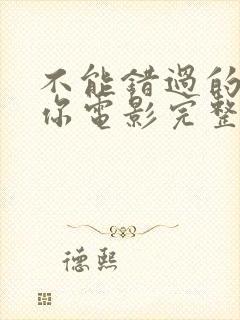 不能错過的
你電影完整
德熙